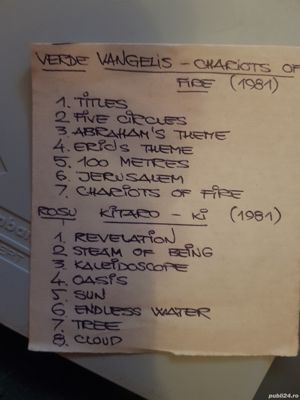 VERDE VANGELIS - CHARIOTS OF
FIRE (1981)
1. TITLES
2 FIVE CIRCLES
3 ABRAHAM'S THEME
4. ERIC'S THEME
5. 100 METRES
6. JERUSALEM
7. CHARIOTS OF FIRE
ROSU KITARO - KI (1981)
1. REVELATION
2 STEAM OF BEING
3. KALEIDOSCOPE
4. OASIS
5. SUN
6 ENDLESS WATER
7. TREE
8. CLOUD
publi24.ro